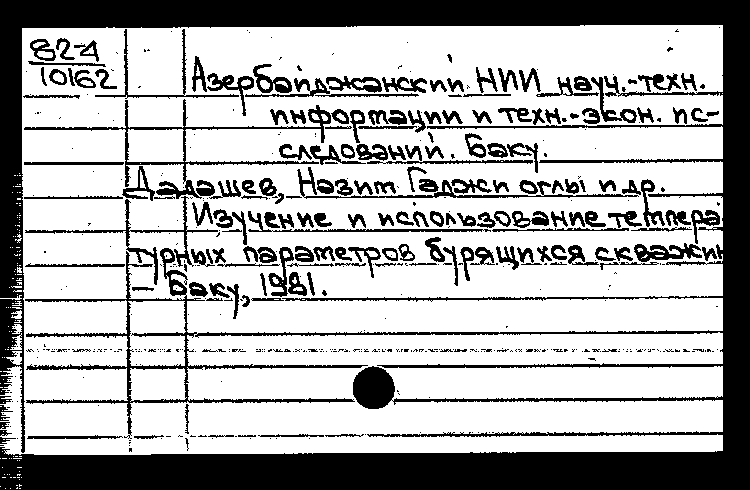 82-4
10162
Азербайджанский НИИ науч.-техн.
информации и техн.-экон. ис-
следований. Баку.
Дадашев, Назим Гаджи оглы и др.
Изучение и использование темпера
турных параметров бурящихся скважин
– Баку, 1981.